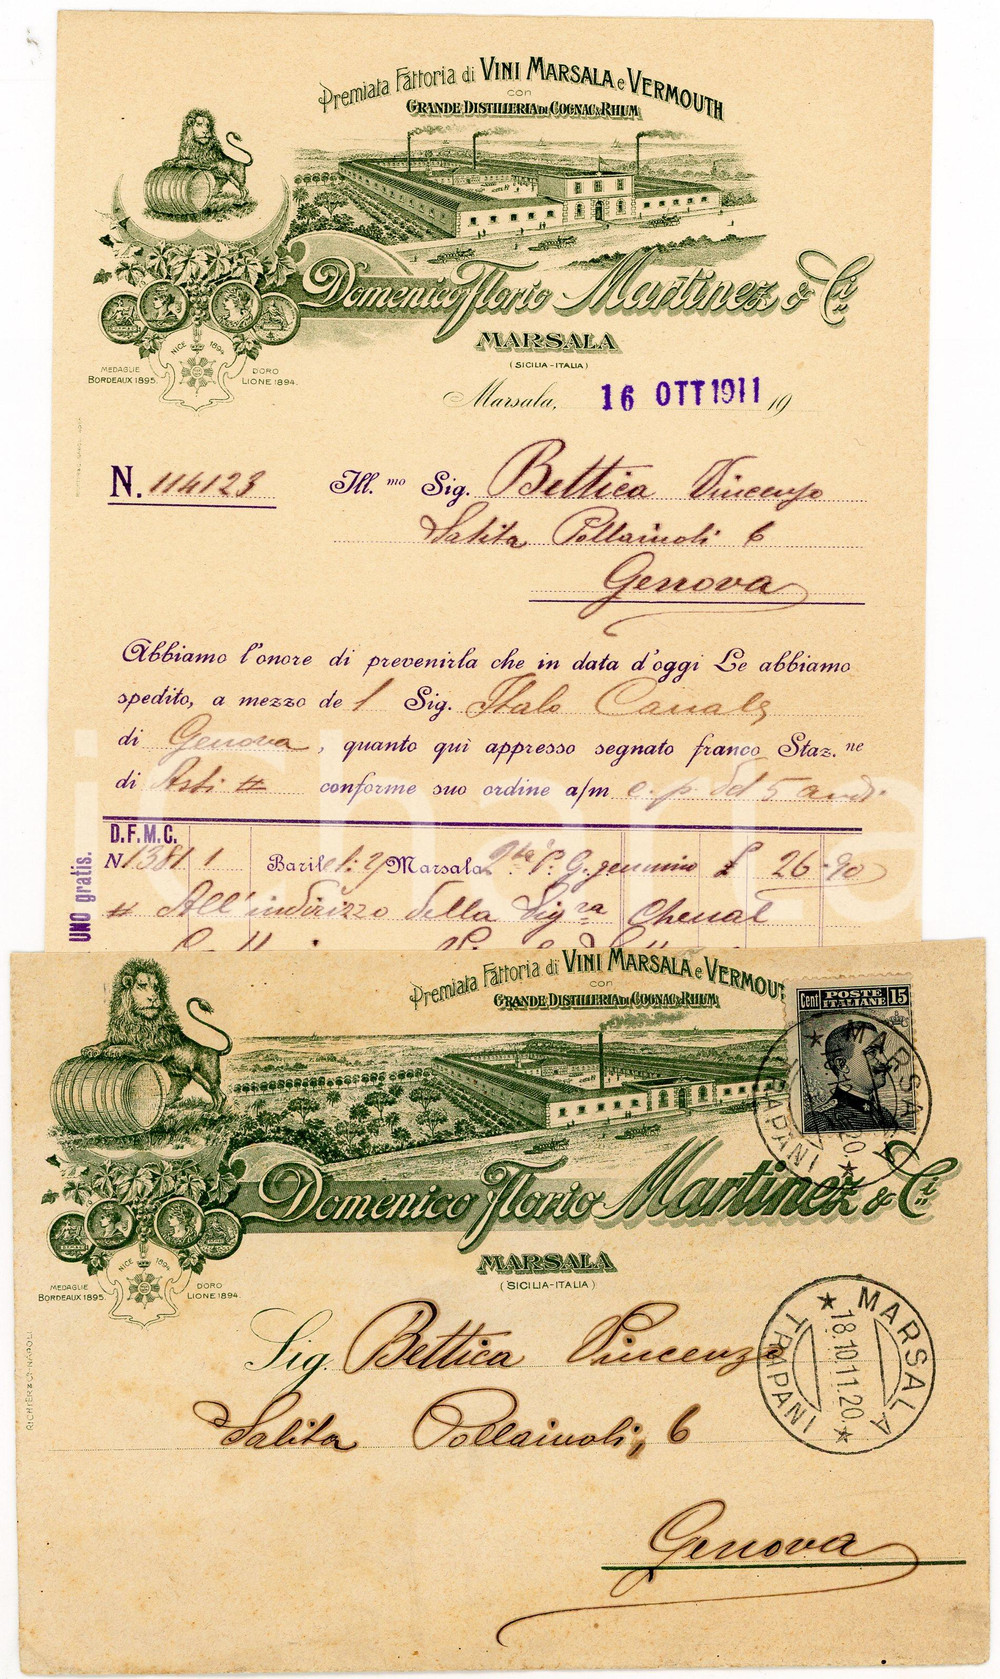 Premiata Fattoria di VINI MARSALA e VERMOUTH
con
GRANDE DISTILLERIA DI COGNAC & RHUM
Domenico Florio Martinez & Ci.
MARSALA
(SICILIA-ITALIA)
NICE 1894
MEDAGLIE D'ORO
BORDEAUX 1895. LIONE 1894.
Marsala, 16 OTT 1911 19
N. 114123 Ill.mo Sig. Bettica Vincenzo
Salita Pollaiuoli 6
Genova
Abbiamo l'onore di prevenirla che in data d'oggi Le abbiamo
spedito, a mezzo de l Sig. Italo Canale
di Genova, quanto quì appresso segnato franco Staz.ne
di Asti # conforme suo ordine a/m c. p. del 5 and.
D.F.M.C.
N. 1381 1 Barile Marsala P. G. genuino £ 26.90
# All'indirizzo della Sig.ra Chenal
UNO gratis.
Premiata Fattoria di VINI MARSALA e VERMOUTH
con
GRANDE DISTILLERIA DI COGNAC & RHUM
Cent POSTE ITALIANE 15
MARSALA TRAPANI
Domenico Florio Martinez & Ci.
MARSALA
(SICILIA-ITALIA)
NICE 1894
MEDAGLIE D'ORO
BORDEAUX 1895. LIONE 1894.
MARSALA
18.10.11.20.
TRAPANI
Sig. Bettica Vincenzo
Salita Pollaiuoli, 6
Genova
RICHTER & C. NAPOLI